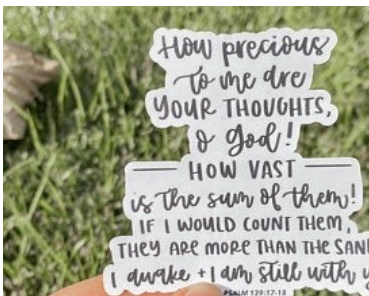 How precious
to me are
YOUR THOUGHTS,
O God!
HOW VAST
is the sum of them!
IF I WOULD COUNT THEM,
THEY ARE MORE THAN THE
I awake + I am still with
PSALM 139:17-18